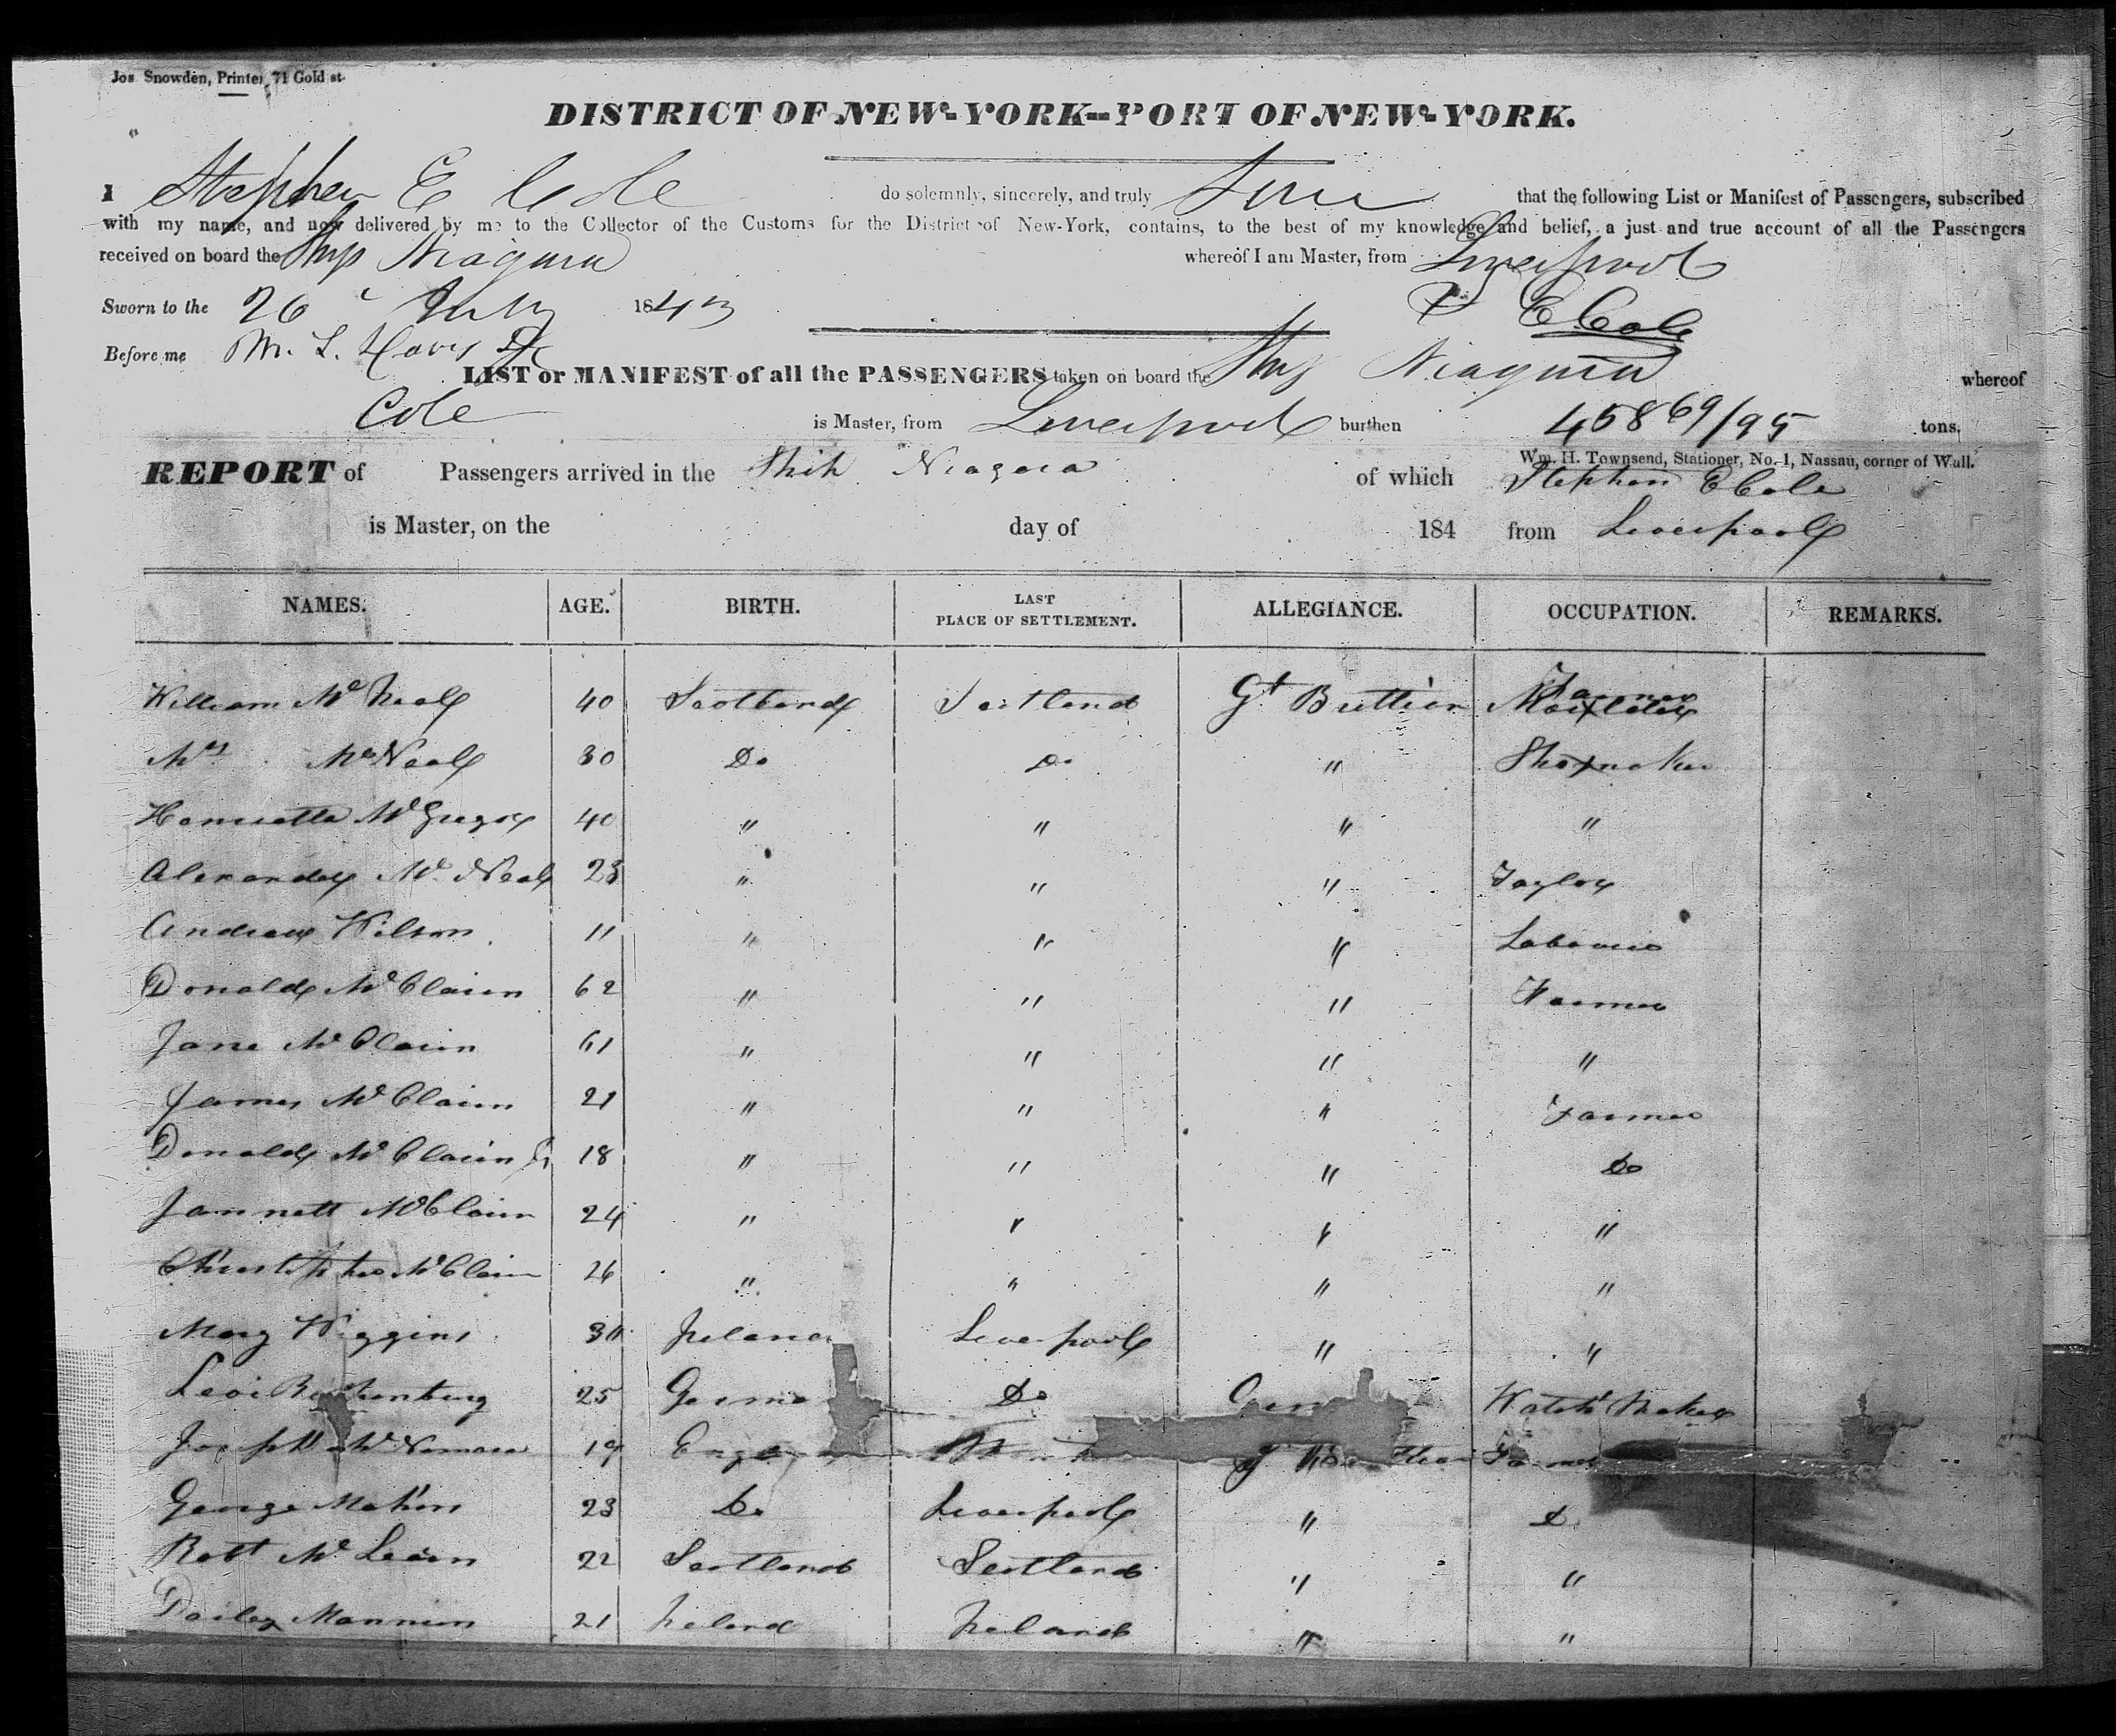 Jos Snowden, Printer, 71 Gold st
DISTRICT OF NEW-YORK--PORT OF NEW-YORK.
I Stephen E Cole do solemnly, sincerely, and truly that the following List or Manifest of Passengers, subscribed
with my name, and now delivered by me to the Collector of the Customs for the District of New-York, contains, to the best of my knowledge and belief, a just and true account of all the Passengers
received on board the Ship Niagara whereof I am Master, from Liverpool
Sworn to the 26 July 1843 E Cole
Before me M. L. Davis
LIST or MANIFEST of all the PASSENGERS taken on board the Ship Niagara whereof
Cole is Master, from Liverpool burthen 458 69/95 tons.
Wm. H. Townsend, Stationer, No. 1, Nassau, corner of Wall.
REPORT of Passengers arrived in the Ship Niagara of which Stephen E Cole
is Master, on the day of 184 from Liverpool
NAMES. AGE. BIRTH. LAST PLACE OF SETTLEMENT. ALLEGIANCE. OCCUPATION. REMARKS.
William McNeal 40 Scotland Scotland Gt Brittian Farmer
Mrs McNeal 30 Do Do " Shoemaker
Henrietta McGregor 40 " " " "
Alexander McNeal 23 " " " Taylor
Andrew Wilson 11 " " " Labourer
Donald McClain 62 " " " Farmer
Jane McClain 61 " " " "
James McClain 21 " " " Farmer
Donald McClain Jr 18 " " " Do
Jannett McClain 24 " " " "
Christopher McClain 26 " " " "
Mary Wiggins 30 Ireland Liverpool " "
Levi 25 Germa Do Ger Watch Maker
Joseph McNamara 19 Eng Farmer
George Makin 23 Do Liverpool " Do
Robt McLean 22 Scotland Scotland " "
Dailey Mannion 21 Ireland Ireland " "